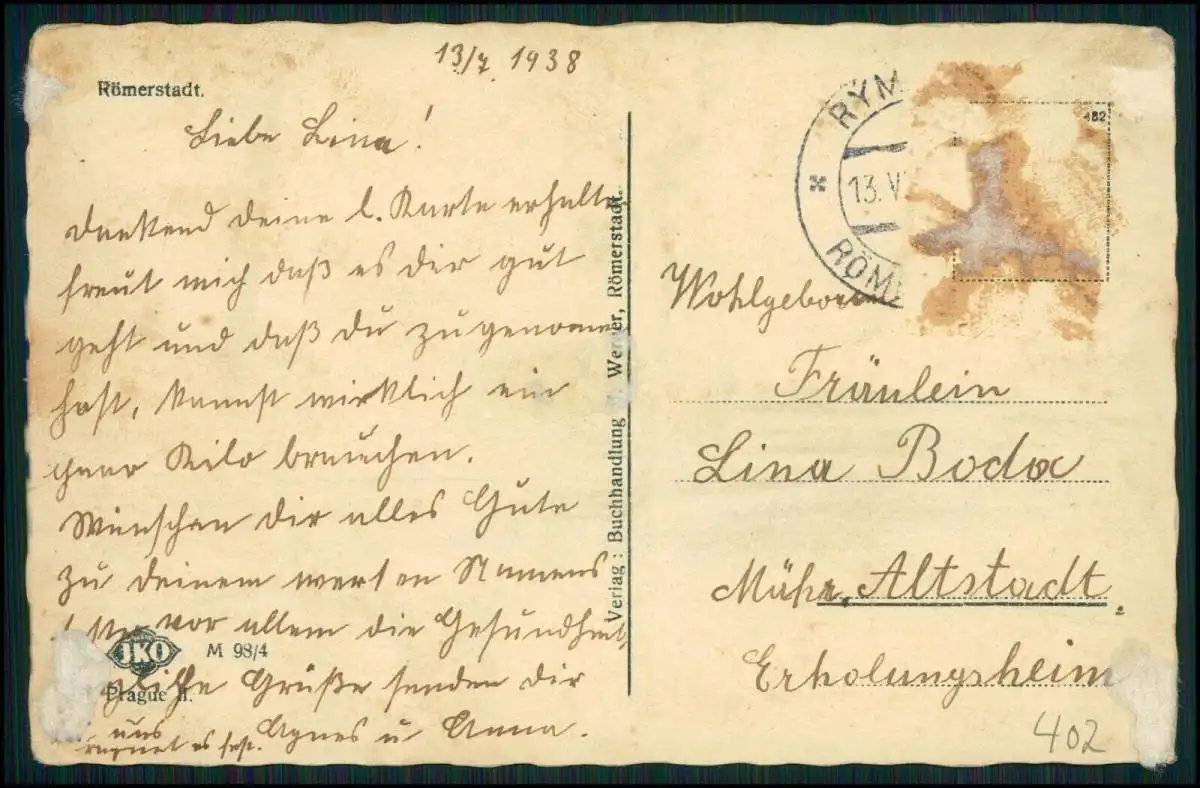 13/7 1938
Römerstadt.
Liebe Lina!
dankend deine l. Karte erhalten
freut mich daß es dir gut
geht und daß du zugenomen
hast, kannst wirklich ein
paar Kilo brauchen.
Wünschen dir alles Gute
zu deinem werten Namens
vor allem die Gesundheit,
Grüße senden dir
Agnes u Anna.
uns regnet es fest.
JKO
M 98/4
Prague II.
Verlag: Buchhandlung Werner, Römerstadt.
RYM
13. V
RÖME
482
Wohlgeboren
Fräulein
Lina Boda
Mähr. Altstadt.
Erholungsheim
402